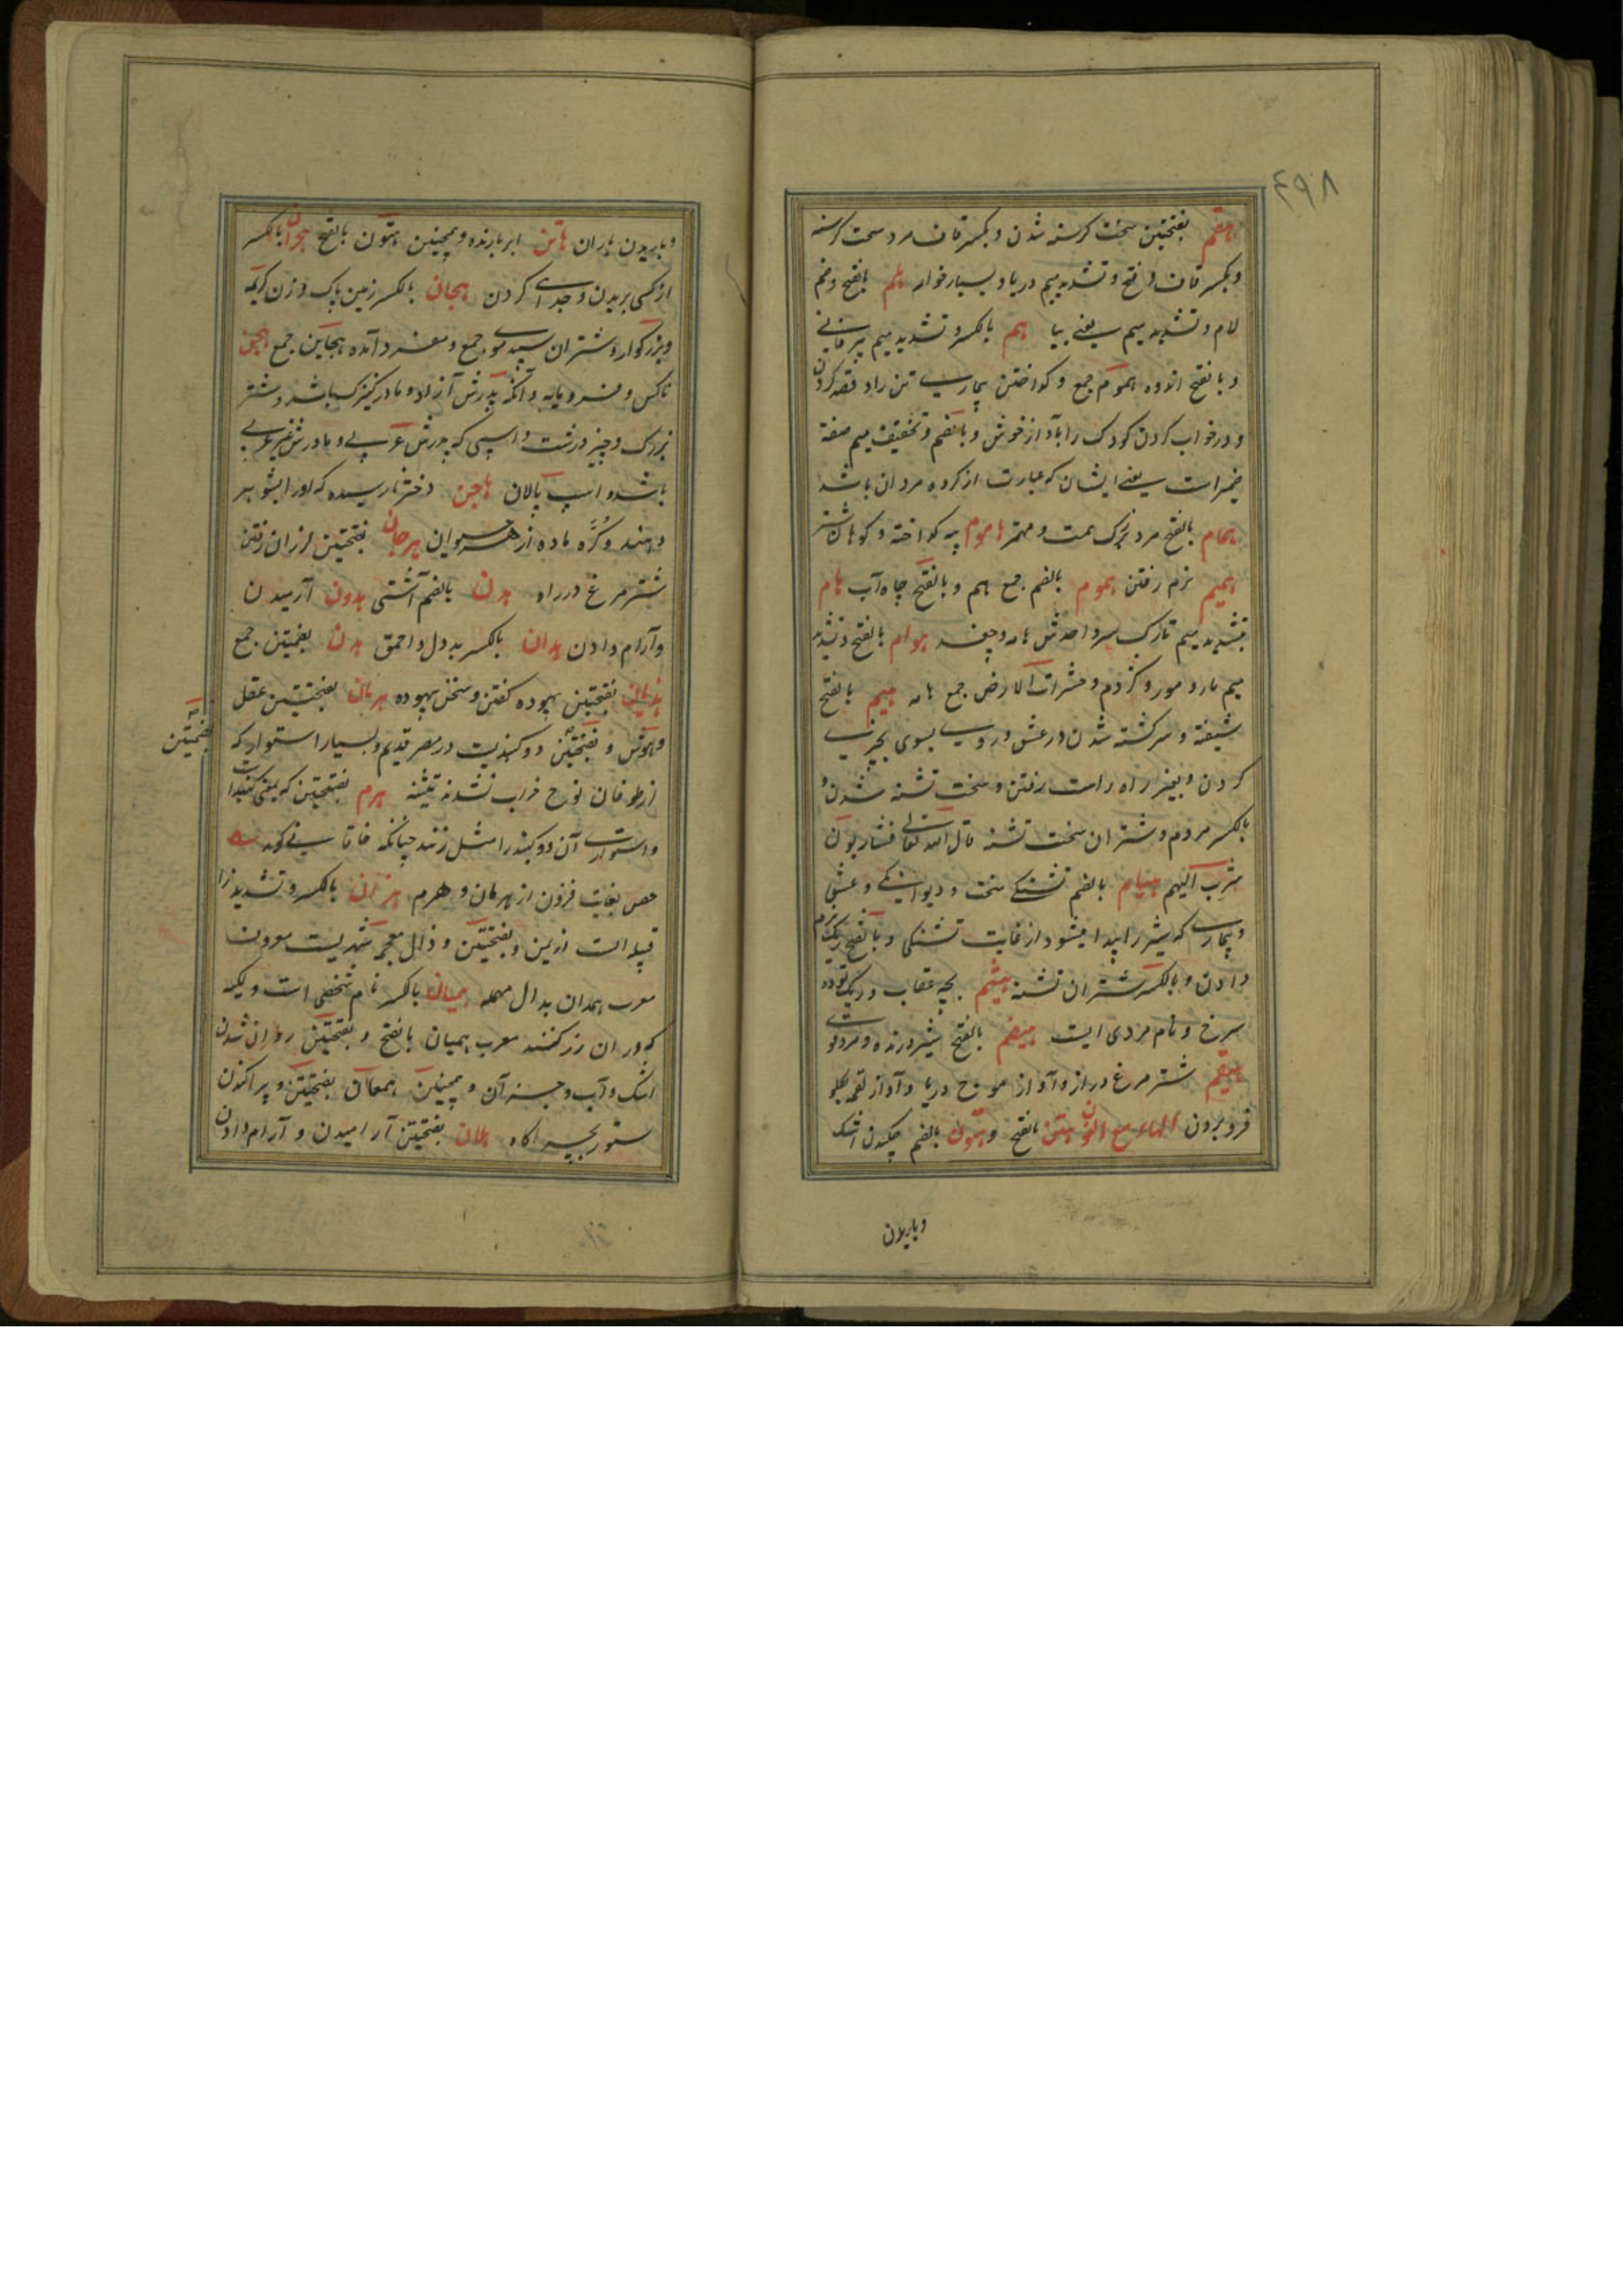 ٤٩٨
هقم بفتحتین سخت کرسنه شدن و بکسر قاف مرد سخت کرسنه
و بکسر قاف و فتح و تشدید میم دریا و بسیار خوار هلم بالفتح و ضم
لام و تشدید میم یعنے بیا هم بالکسر و تشدید میم پیر فانے
و بالفتح اندوه هموم جمع و کداختن بیماری تن را و قصد کردن
و در خواب کردن کودک را بآواز خوش و بالضم و تخفیف میم صفة
ضمیرات یعنے ایشان که عبارت از کروه مردان باشد
همام بالضم مرد بزرک همت و مهتر هاموم پیه کداخته و کوهان شتر
همیم نرم رفتن هموم بالضم جمع هم و بالفتح چاه آب هام
بتشدید میم تارک سر واحدش هامه و جغد هوام بالفتح و تشدید
میم مار و مور و کژدم و حشرات الارض جمع هامه هیم بالفتح
شیفته و سرکشته شدن در عشق و روی بسوی چیزی
کردن و بیغیر راه راست رفتن و سخت تشنه شدن و
بالکسر مردم و شتران سخت تشنه قال الله تعالی فشاربون
شرب الهیم هیام بالضم تشنکے سخت و دیوانکے و عشق
و بیماری که شتر را پیدا میشود از غایت تشنکی و بالفتح ریک نرم
دادن و بالکسر شتران تشنه هیثم بچه عقاب و ریک توده
سرخ و نام مردی است هیضم بالفتح شیر درنده و مرد قوی
هیقم شتر مرغ دراز و آواز موج دریا و آواز لقمه بکلو
فرو بردن الهاء مع النون هتن بالفتح و هتون بالضم چکیدن اشک
و باریدن
و باریدن باران هاتن ابر بارنده و همچنین هتون بالفتح هجران بالکسر
از کسی بریدن و جدائے کردن هجان بالکسر زمین پاک و زن کریمه
و بزرکوار و شتران سپید موی جمع و مفرد آمده هجاین جمع هجین
ناکس و فرومایه و آنکه پدرش آزاد و مادر کنیزک باشد و شتر
بزرک و چیز درشت و اسپی که پدرش عربے و مادرش غیر عربے
باشد و اسپ پالان هاجن دختر نارسیده که او را بشوهر
دهند و کرّه ماده از هر حیوان هرجان بفتحتین لرزان رفتن
شتر مرغ در راه هدن بالضم آشتی هدون آرمیدن
و آرام دادن هدان بالکسر بد دل و احمق هدن بضمتین جمع
هذیان بفتحتین بیهوده کفتن و سخن بیهوده هرمان بفتحتین عقل
و هوش و بفتحتین دو کنبدیست در مصر قدیم و بسیار استوار که
بضمتین
از طوفان نوح خراب نشدند تثنیه هرم بفتحتین که بمعنی کنبد است
و استواری آن دو کنبد را مثل زنند چنانکه خاقانے کوید
حصن بغایت فزون از هرمان و هرم هزان بالکسر و تشدید زا
قبیله است از یمن و بفتحتین و ذال معجمه شهریست معروف
معرب همدان بدال مهمله همیان بالکسر نام شخصی است و کیسه
که در آن زر کنند معرب همیان بالفتح و بفتحتین روان شدن
اشک و آب و جز آن و همچنین بفتحتین و پراکندن
ستور بچراکاه هلان بفتحتین آرامیدن و آرام دادن